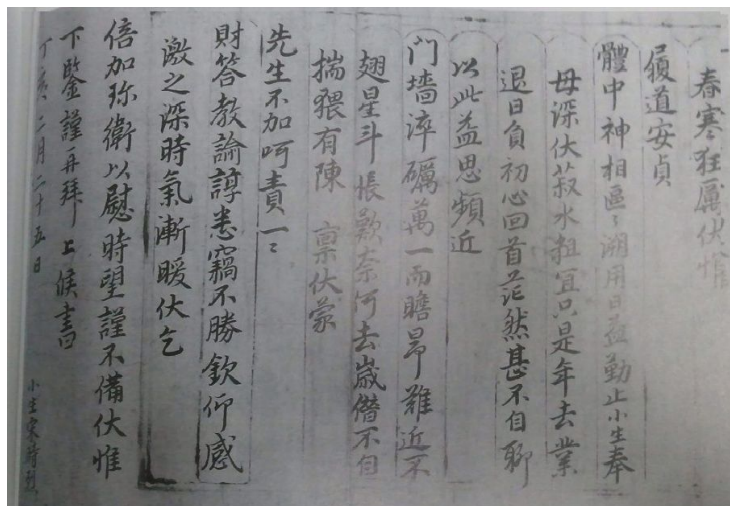 春寒狂厲伏惟
履道安貞
體中神相區〻溯用日益勤止小生奉
母深伏菽水粗宜只是年去業
退日負初心回首茫然甚不自聊
以此益思頻近
門墻淬礪萬一而瞻昴難近不
翅星斗悵歎奈何去歲僭不自
揣猥有陳 稟伏蒙
先生不加呵責一〻
財答教諭諄悉竊不勝欽仰感
激之深時氣漸暖伏乞
倍加珍衛以慰時望謹不備伏惟
下鑒謹再拜上候書
丁亥二月二十五日
小生宋時烈